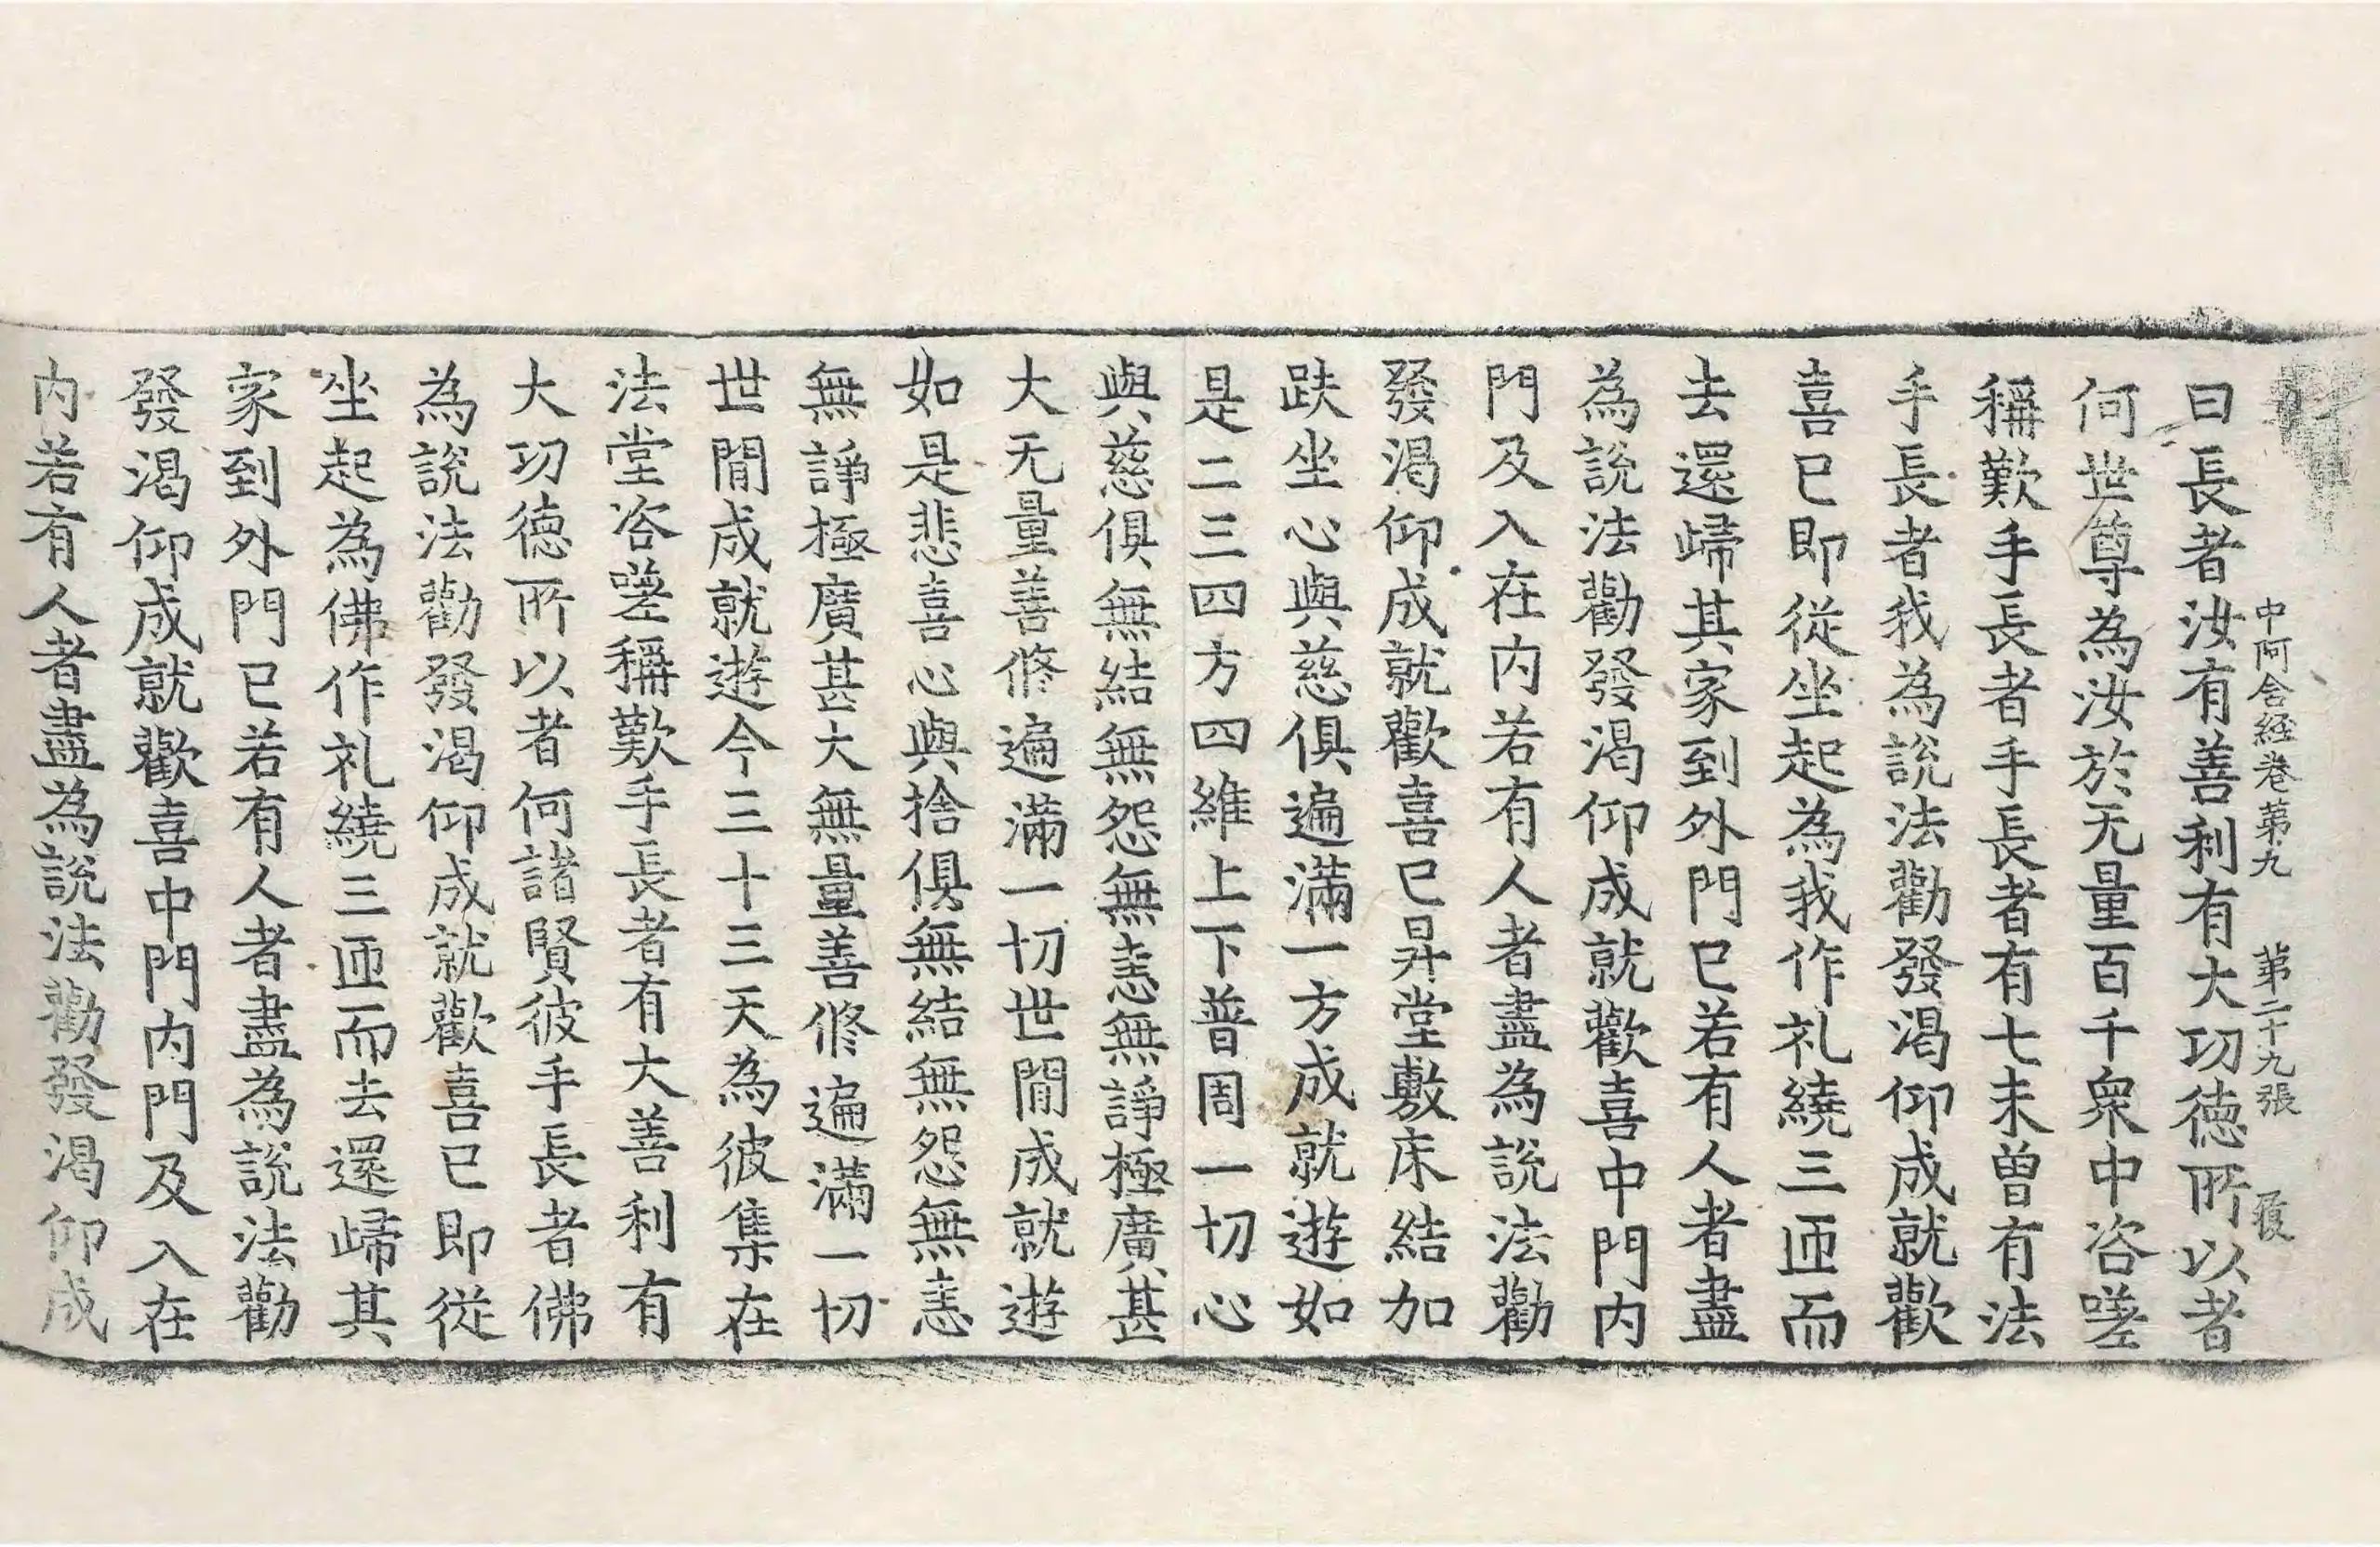 中阿含経巻第九　第二十九張
曰長者汝有善利有大功徳所以者
何世尊為汝於无量百千衆中咨嗟
稱歎手長者手長者有七未曽有法
手長者我為說法勸發渴仰成就歡
喜已即從坐起為我作礼繞三匝而
去還歸其家到外門已若有人者盡
為說法勸發渴仰成就歡喜中門内
門及入在内若有人者盡為說法勸
發渴仰成就歡喜已昇堂敷床結加
趺坐心與慈俱遍滿一方成就遊如
是二三四方四維上下普周一切心
與慈俱無結無怨無恚無諍極廣甚
大无量善修遍滿一切世閒成就遊
如是悲喜心與捨俱無結無怨無恚
無諍極廣甚大無量善修遍滿一切
世閒成就遊今三十三天為彼集在
法堂咨嗟稱歎手長者有大善利有
大功徳所以者何諸賢彼手長者佛
為說法勸發渴仰成就歡喜已即從
坐起為佛作礼繞三匝而去還歸其
家到外門已若有人者盡為說法勸
發渴仰成就歡喜中門内門及入在
内若有人者盡為說法勸發渴仰成